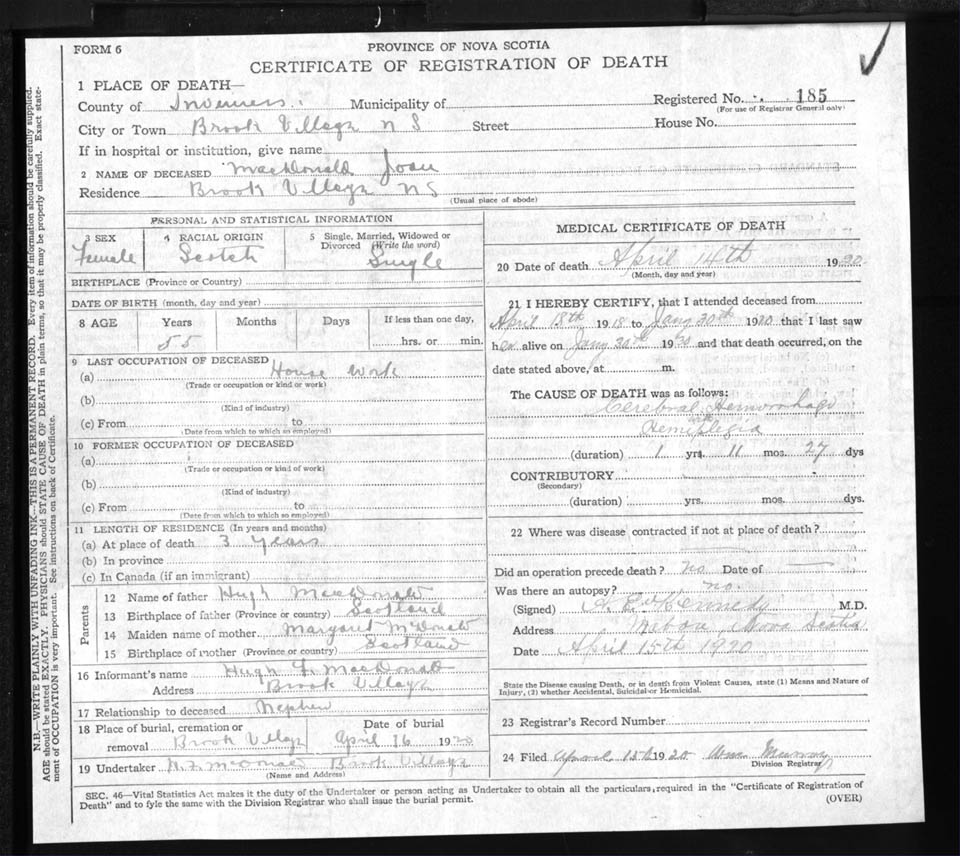 FORM 6
PROVINCE OF NOVA SCOTIA
CERTIFICATE OF REGISTRATION OF DEATH
N.B.—WRITE PLAINLY WITH UNFADING INK—THIS IS A PERMANENT RECORD. Every item of information should be carefully supplied.
AGE should be stated EXACTLY. PHYSICIANS should STATE CAUSE OF DEATH in plain terms, so that it may be properly classified. Exact state-
ment of OCCUPATION is very important. See instructions on back of Certificate.
1 PLACE OF DEATH—
County of Inverness. Municipality of
Registered No. 185
(For use of Registrar General only)
City or Town Brook Village N S Street House No.
If in hospital or institution, give name
2 NAME OF DECEASED MacDonald Joan
Residence Brook Village NS
(Usual place of abode)
PERSONAL AND STATISTICAL INFORMATION
3 SEX 4 RACIAL ORIGIN 5 Single, Married, Widowed or
Divorced (Write the word)
Female Scotch Single
BIRTHPLACE (Province or Country)
DATE OF BIRTH (month, day and year)
8 AGE Years Months Days If less than one day,
55 hrs. or min.
9 LAST OCCUPATION OF DECEASED
(a) House work
(Trade or occupation or kind or work)
(b)
(Kind of industry)
(c) From to
(Date from which to which so employed)
10 FORMER OCCUPATION OF DECEASED
(a)
(Trade or occupation or kind of work)
(b)
(Kind of industry)
(c) From to
(Dates from which to which so employed)
11 LENGTH OF RESIDENCE (In years and months)
(a) At place of death 3 years
(b) In province
(c) In Canada (if an immigrant)
Parents
12 Name of father Hugh MacDonald
13 Birthplace of father (Province or country) Scotland
14 Maiden name of mother Margaret McDonald
15 Birthplace of mother (Province or country) Scotland
16 Informant's name Hugh MacDonald
Address Brook Village
17 Relationship to deceased Nephew
18 Place of burial, cremation or Date of burial
removal Brook Village April 16 1920
19 Undertaker Brook Village
(Name and Address)
MEDICAL CERTIFICATE OF DEATH
20 Date of death April 14th 1920
(Month, day and year)
21 I HEREBY CERTIFY, that I attended deceased from
April 18th 1918 to Jany 30th 1920 that I last saw
her alive on Jany 30th 1920 and that death occurred, on the
date stated above, at m.
The CAUSE OF DEATH was as follows:
Cerebral Hemorrhage
with
Hemiplegia
(duration) 1 yrs. 11 mos. 27 dys
CONTRIBUTORY
(Secondary)
(duration) yrs. mos. dys.
22 Where was disease contracted if not at place of death?
Did an operation precede death? no Date of
Was there an autopsy? no.
(Signed) Kennedy M.D.
Address Mabou Nova Scotia
Date April 15th 1920
State the Disease causing Death, or in death from Violent Causes, state (1) Means and Nature of
Injury, (2) whether Accidental, Suicidal or Homicidal.
23 Registrar's Record Number
24 Filed April 15th 1920 Wm Murray
Division Registrar
SEC. 46—Vital Statistics Act makes it the duty of the Undertaker or person acting as Undertaker to obtain all the particulars, required in the "Certificate of Registration of
Death" and to fyle the same with the Division Registrar who shall issue the burial permit.
(OVER)